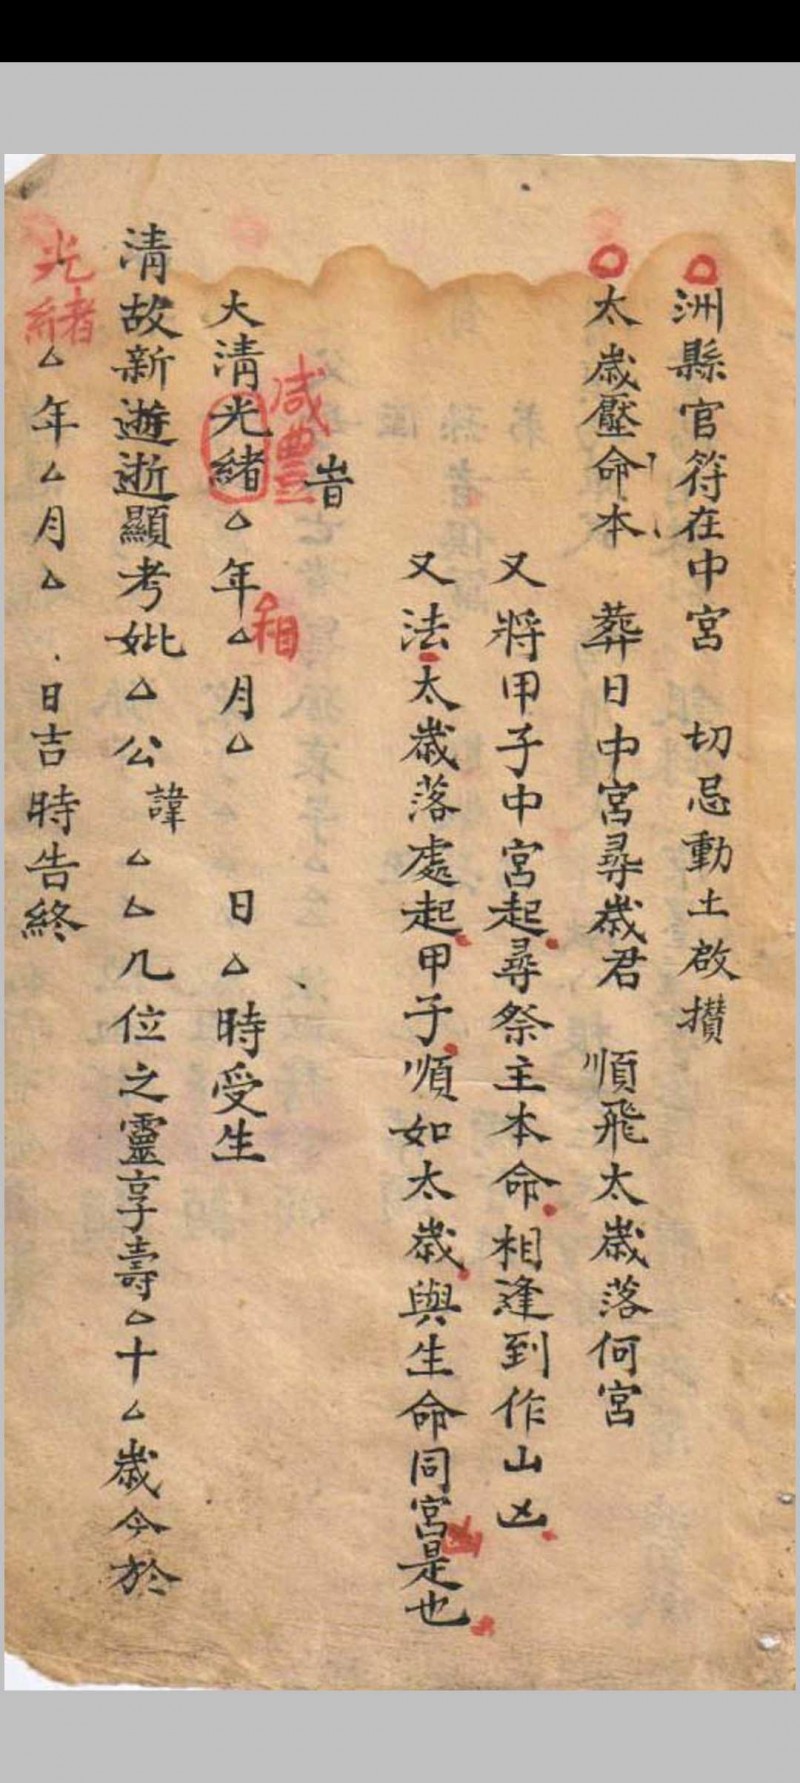 洲縣官符在中宮　切忌動土啟攢
太歲壓命本　葬日中宮尋歲君　順飛太歲落何宮
又將甲子中宮起尋祭主本命相逢到作山凶
又法太歲落處起甲子順如太歲與生命同宮是也
凶
旹
咸豐
大清光緒△年△月△　日△時受生
相
清故新逝逝顯考妣△公諱△△几位之靈享壽△十△歲今於
光緒
△年△月△　日吉時告終